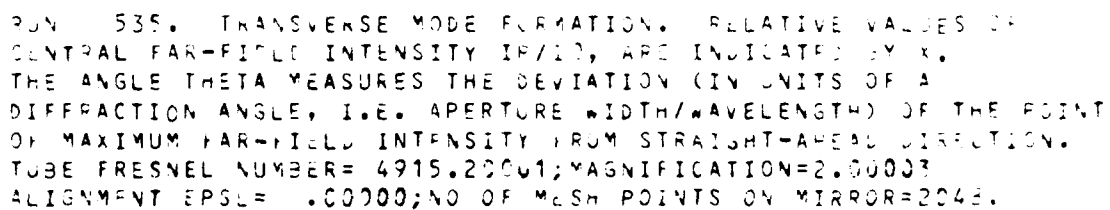 RUN 535. TRANSVERSE MODE FORMATION. RELATIVE VALUES OF
CENTRAL FAR-FIELD INTENSITY IP/I0, ARE INDICATED BY X.
THE ANGLE THETA MEASURES THE DEVIATION (IN UNITS OF A
DIFFRACTION ANGLE, I.E. APERTURE WIDTH/WAVELENGTH) OF THE POINT
OF MAXIMUM FAR-FIELD INTENSITY FROM STRAIGHT-AHEAD DIRECTION.
TUBE FRESNEL NUMBER= 4915.20001;MAGNIFICATION=2.00003
ALIGNMENT EPSL= .00000;NO OF MESH POINTS ON MIRROR=2048.